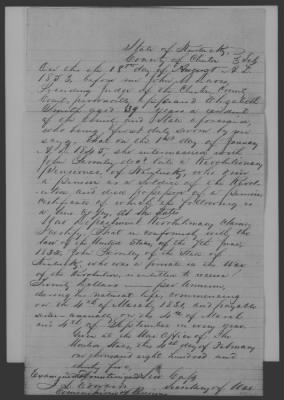 State of Kentucky
County of Clinton } Sct
On this the 18th day of August A.D.
1853, before me John
Presiding Judge of the Clinton County
Court, personally appeared Elizabeth
aged 39 years a resident
of the County and State aforesaid
who being first duly sworn by me
says that on the 1st day of January
A.D. 1845, she intermarried with
John decd. late a Revolutionary
Pensioner, of Kentucky, who was
a pension as a soldier of the Revol-
ution and died possessed of a pension
certificate of which the following is
a true Copy,
War Department Revolutionary Claim,
I certify that in conformity with the
law of the United States, of the 7th June
1832, John of the State of
Kentucky who was a private in the War
of the Revolution, is entitled to receive
Twenty dollars per annum
during his natural life, commencing
on the 4th of March, 1831, and payable
semi-annually, on the 4th of March
and 4th of September in every year
Given at the War Office of the
United States, this 4th day of February
one thousand eight hundred and
thirty five,
Lew Cass
J. L. Edwards Secretary of War
Commissioner of Pensions